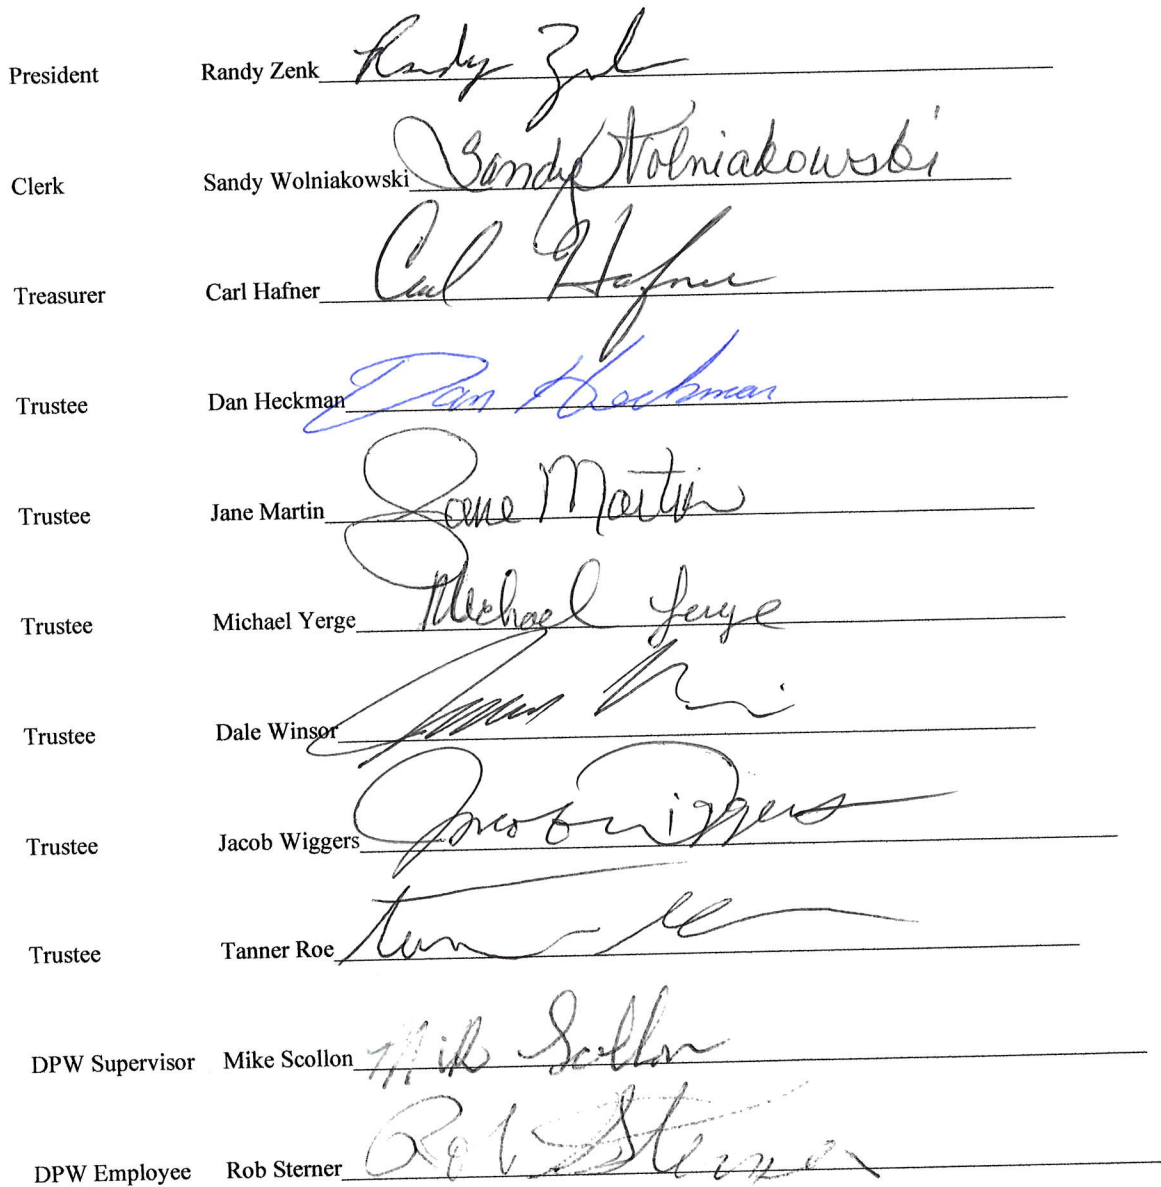 President Randy Zenk Randy Zenk
Clerk Sandy Wolniakowski Sandy Wolniakowski
Treasurer Carl Hafner Carl Hafner
Trustee Dan Heckman Dan Heckman
Trustee Jane Martin Jane Martin
Trustee Michael Yerge Michael Yerge
Trustee Dale Winsor
Trustee Jacob Wiggers Jacob Wiggers
Trustee Tanner Roe
DPW Supervisor Mike Scollon Mike Scollon
DPW Employee Rob Sterner Rob Sterner